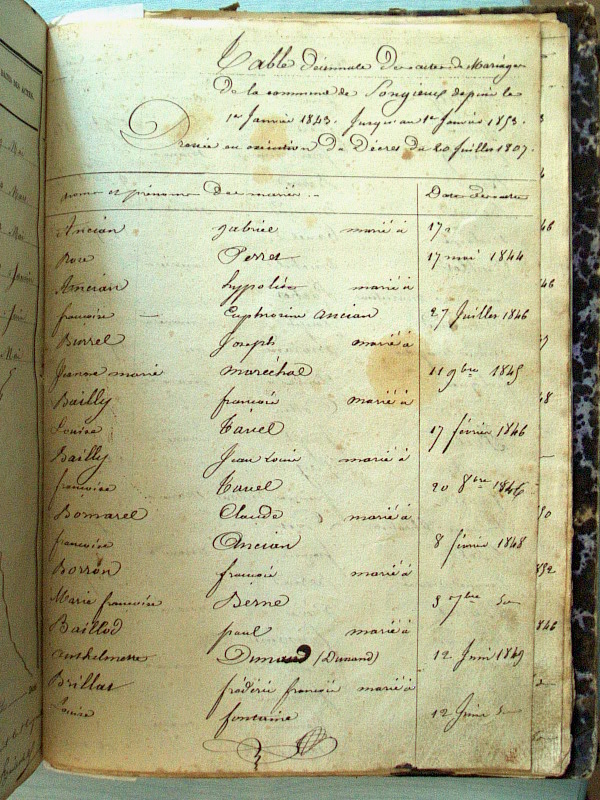 Table décennale des actes de Mariage
de la commune de Songieux depuis le
1er Janvier 1843. Jusqu'au 1er Janvier 1853.
Dressée en exécution du Décret du 20 Juillet 1807.
noms et prénoms des mariés. Date des actes
Ancian gabriel marié à 17
Rose Perret 17 mai 1844
Ancian hypolite marié à
françoise — Euphrosine Ancian 27 Juillet 1846
Burrel Joseph marié à
Jeanne marie maréchal 11 9bre 1845
Bailly françois marié à
Louise Tavel 17 février 1846
Bailly Jean Louis marié à
françoise Tavel 20 8bre 1846
Bomarel Claude marié à
françoise Ancian 8 février 1848
Borron françois marié à
Marie françoise Berne 5 7bre do
Baillod paul marié à
anthelmette Dunand (Dunand) 12 Juin 1849
Brillat frédéric françois marié à
Louise fontaine 12 Juin do